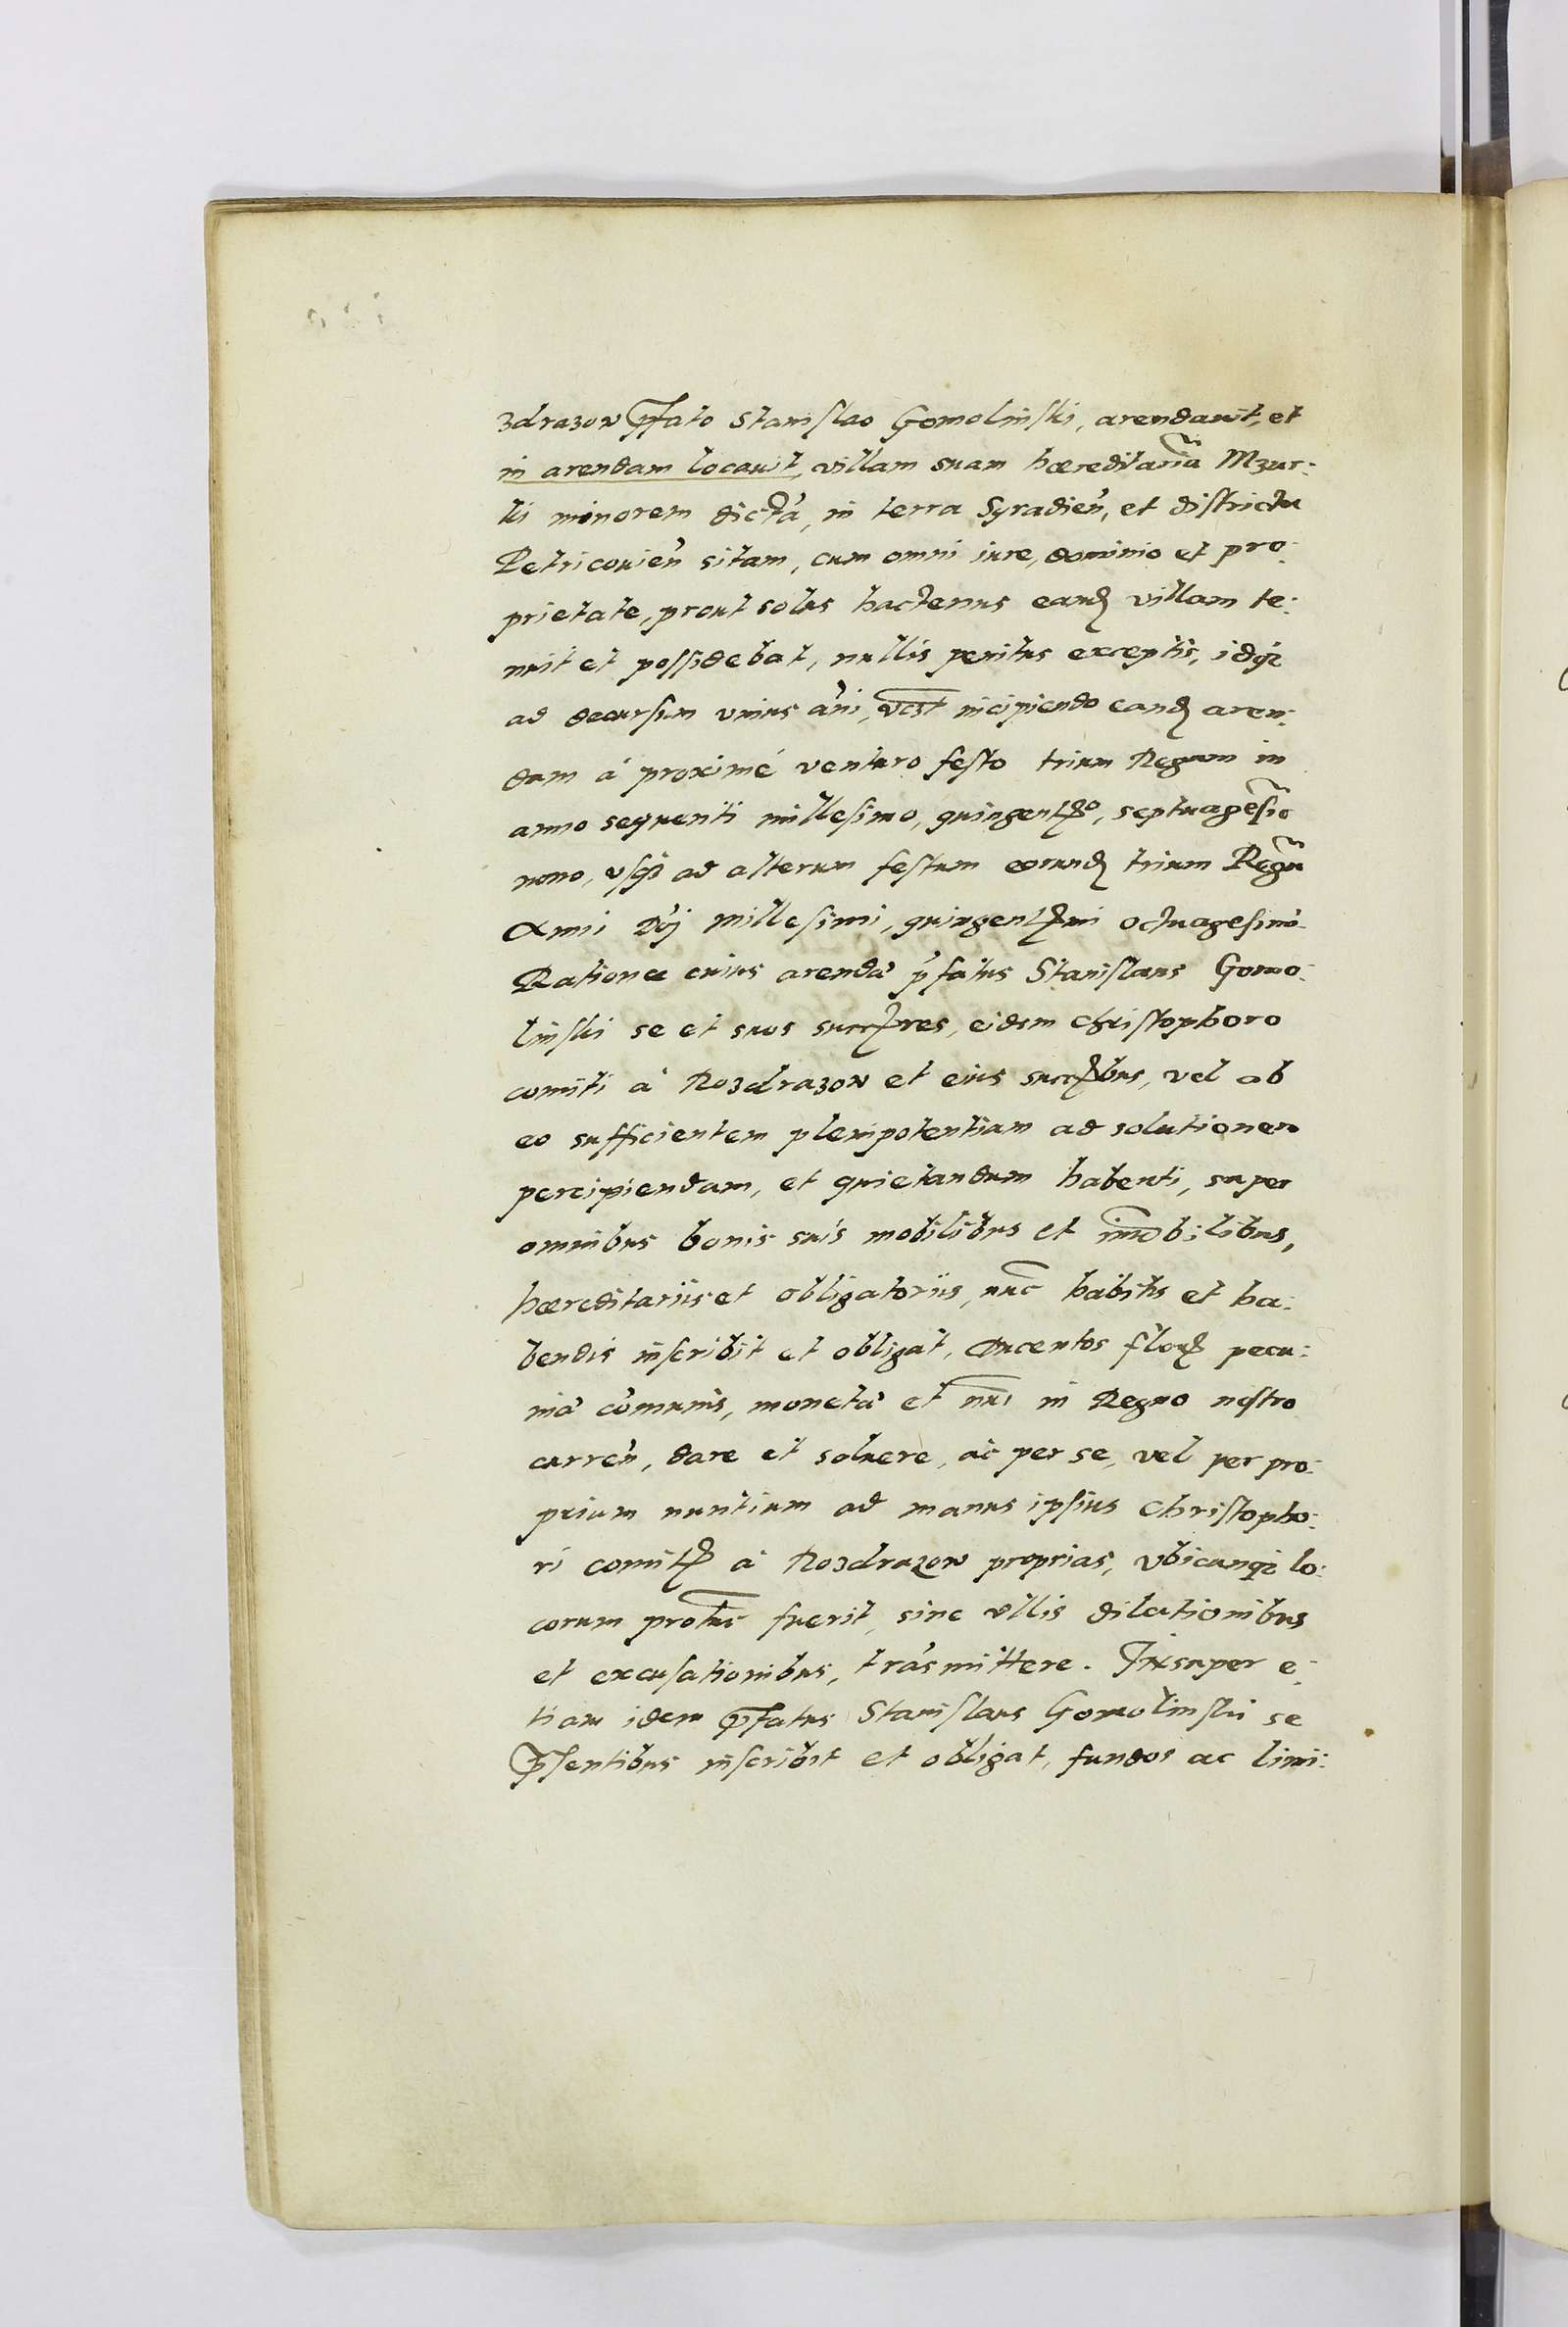 zdrazow p̃fato Stanislao Gomolinski, arendauit, et
in arendam locauit, villam suam hæreditariã Mzur-
ki minorem dictã, in terra Syradieñ, et districtu
Petricouieñ sitam, cum omni iure, dominio et pro-
prietate, prout solus hactenus eandꝫ villam te-
nuit et possidebat, nullis penitus exceptis, idqꝫ
ad decursum vnius añi, incipiendo eandꝫ aren-
dam à proximé venturo festo trium Regum in
anno sequenti millesimo, quingentꝭo, septuagesĩo
nono, vsqꝫ ad alterum festum eorundꝫ trium Regũ
Anni Dñj millesimi, quingentꝭmi octuagesimi.
Ratione cuius arendæ p̃fatus Stanislaus Gomo-
linski se et suos succꝭres, eidem Christophoro
comiti à Rozdrazow et eius succꝭbus, vel ab
eo sufficientem plenipotentiam ad solutionem
percipiendam, et quietandum habenti, super
omnibus bonis suis mobilibus et im̃obilibus,
hæreditariis et obligatoriis, nũc habitis et ha-
bendis inscribit et obligat, ducentos floꝝ pecu-
niæ cõmunis, monetæ et nũi in Regno nostro
curreñ, dare et soluere, ac per se, vel per pro-
prium nuntium ad manus ipsius Christopho-
ri comitꝭ à Rozdrazow proprias, vbicunqꝫ lo-
corum protũc fuerit, sine vllis dilationibus
et excusationibus, trãsmittere. Insuper e-
tiam idem p̃fatus Stanislaus Gomolinski se
p̃sentibus inscribit et obligat, fundos ac limi-